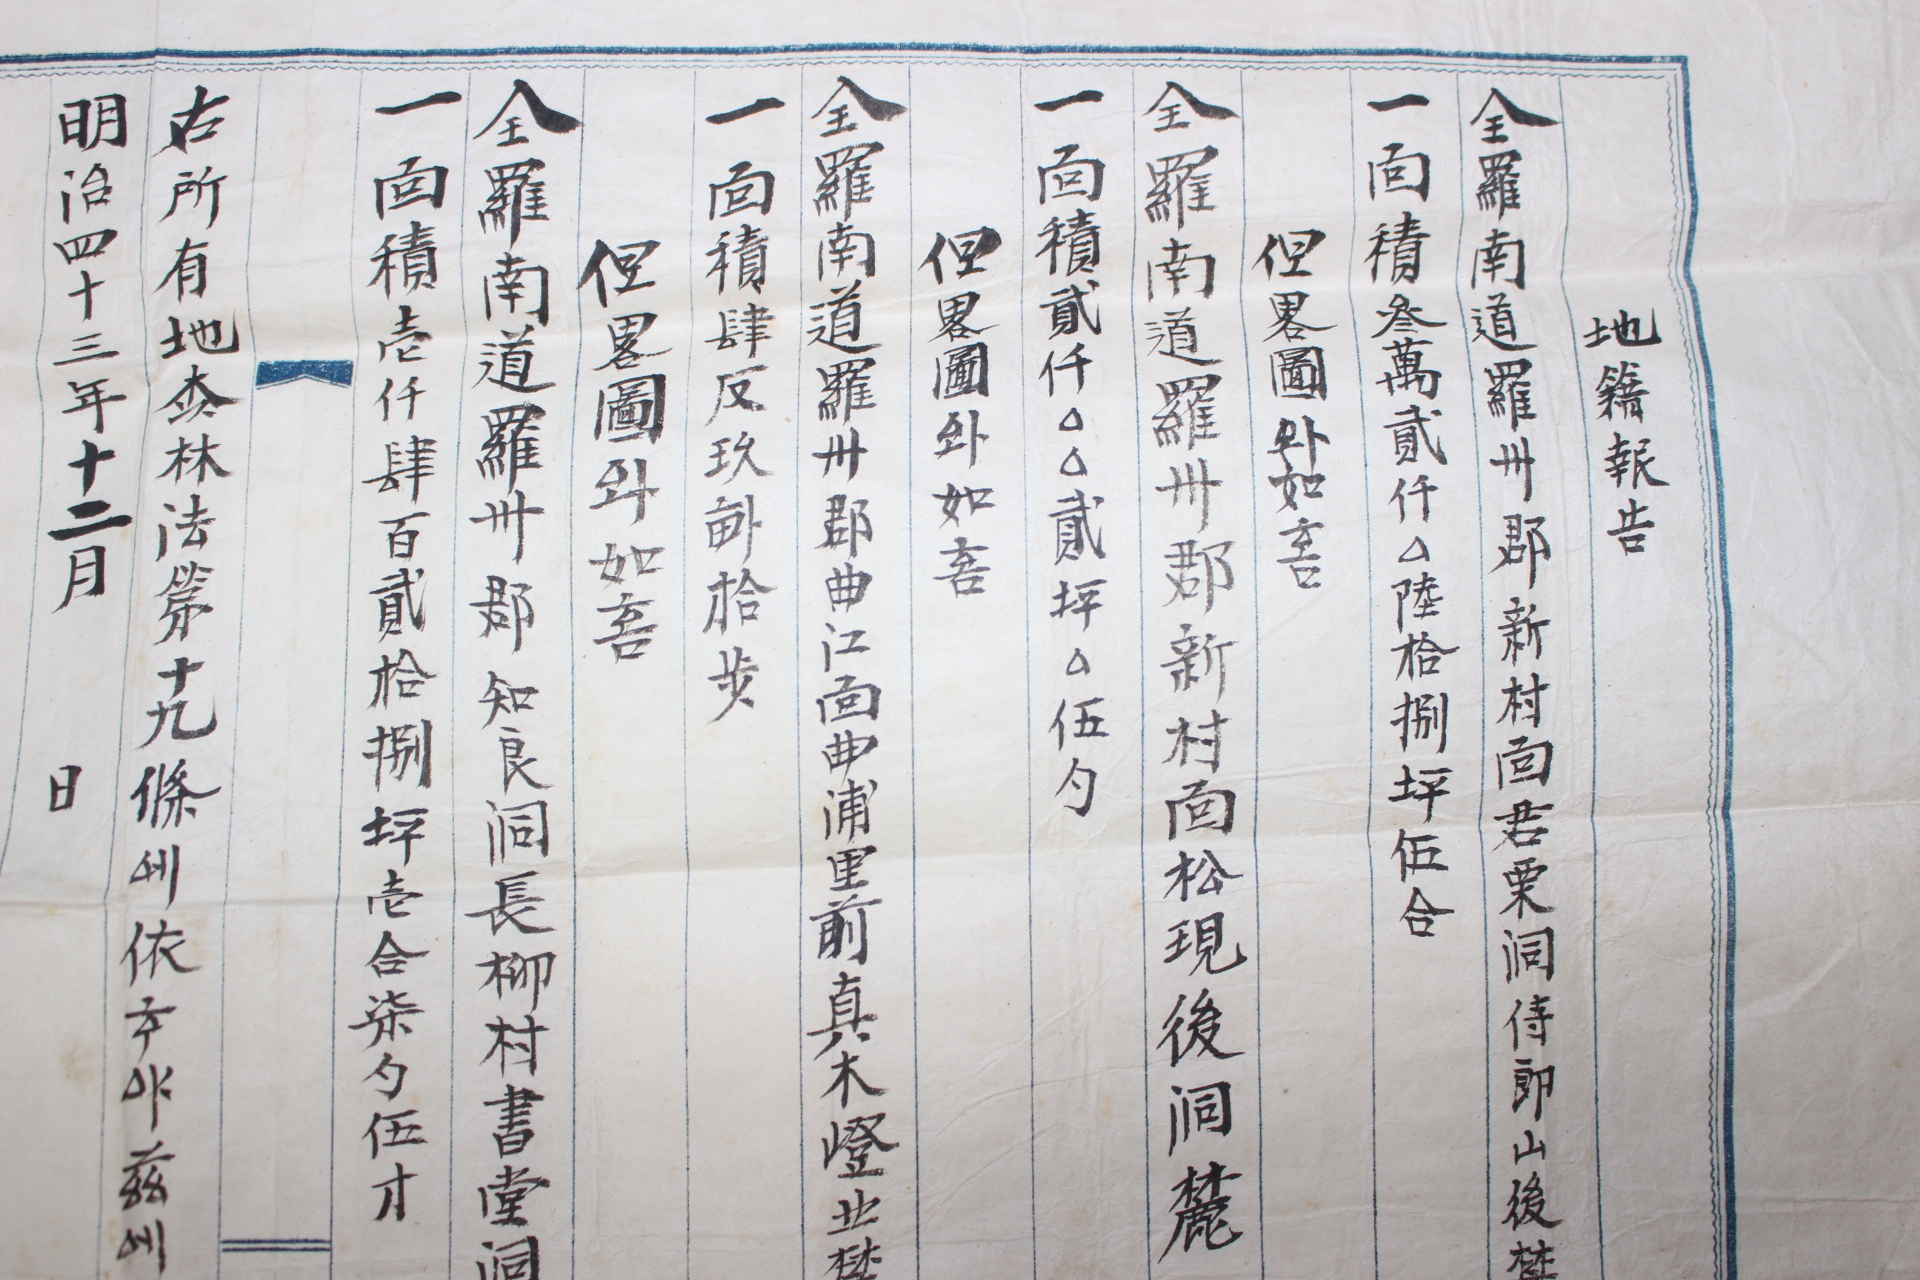 地籍報告
全羅南道羅州郡新村面君栗洞侍郎山後麓
一 面積叄萬貳仟△陸拾捌坪伍合
但畧圖와如홈
全羅南道羅州郡新村面松現後洞麓
一 面積貳仟△△貳坪△伍勺
但畧圖와如홈
全羅南道羅州郡曲江面曲浦里前真木嶝北麓
一 面積肆反玖畝拾步
但畧圖와如홈
全羅南道羅州郡知良洞長柳村書堂洞
一 面積壹仟肆百貳拾捌坪壹合柒勺伍才
右所有地森林法第十九條에依ᄒᆞ야玆에
明治四十三年十二月 日